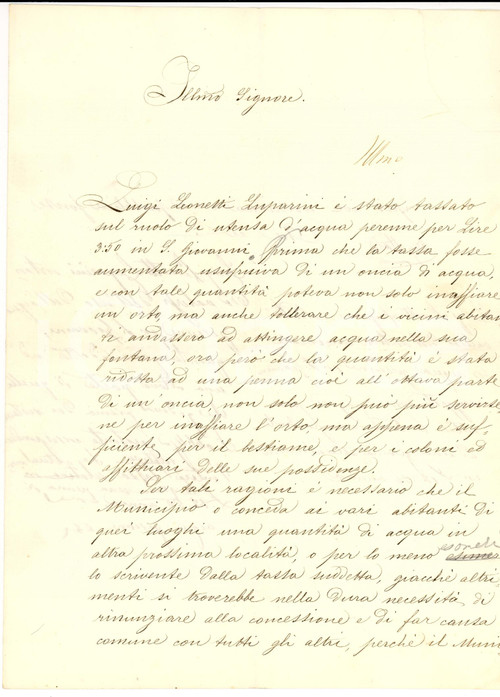 Illmo Signore.
Illmo
Luigi Leonetti Luparini è stato tassato
sul ruolo di utensa d'acqua perenne per Lire
3:50 in S. Giovanni. Prima che la tassa fosse
aumentata usufruiva di un oncia di acqua,
e con tale quantità poteva non solo inaffiare
un orto, ma anche tollerare che i vicini abitan
ti andassero ad attingere acqua nella sua
fontana, ora però che la quantità è stata
ridotta ad una penna cioè all'ottava parte
di un'oncia, non solo non può più servirse
ne per inaffiare l'orto, ma appena è suf,
ficiente per il bestiame, e per i coloni ed
affittuari delle sue possidenze.
Per tali ragioni è necessario che il
Municipio o conceda ai vari abitanti di
quei luoghi una quantità di acqua in
altra prossima località, o per lo meno esoneri
lo scrivente dalla tassa suddetta, giacchè altri,
menti si troverebbe nella dura necessità di
rinunziare alla concessione e di far causa
comune con tutti gli altri, perchè il Muni